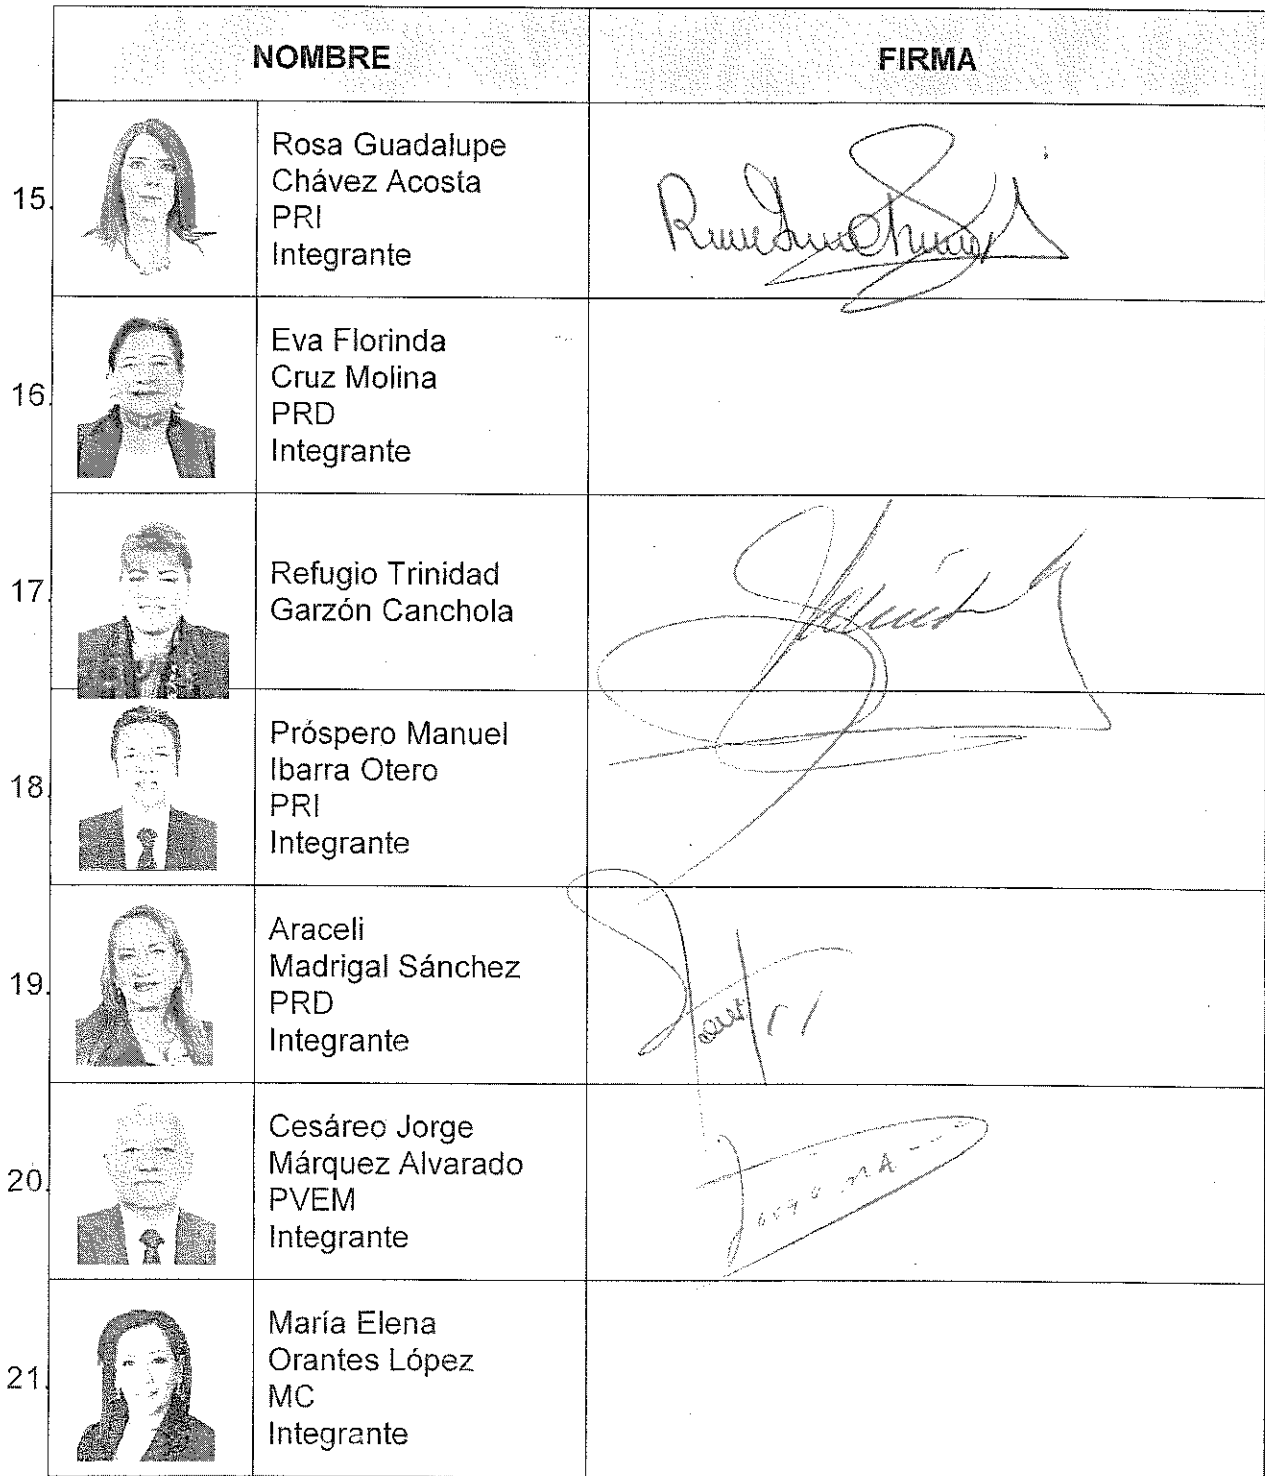 NOMBRE FIRMA
15. Rosa Guadalupe
Chávez Acosta
PRI
Integrante
16. Eva Florinda
Cruz Molina
PRD
Integrante
17. Refugio Trinidad
Garzón Canchola
18. Próspero Manuel
Ibarra Otero
PRI
Integrante
19. Araceli
Madrigal Sánchez
PRD
Integrante
20. Cesáreo Jorge
Márquez Alvarado
PVEM
Integrante
21. María Elena
Orantes López
MC
Integrante